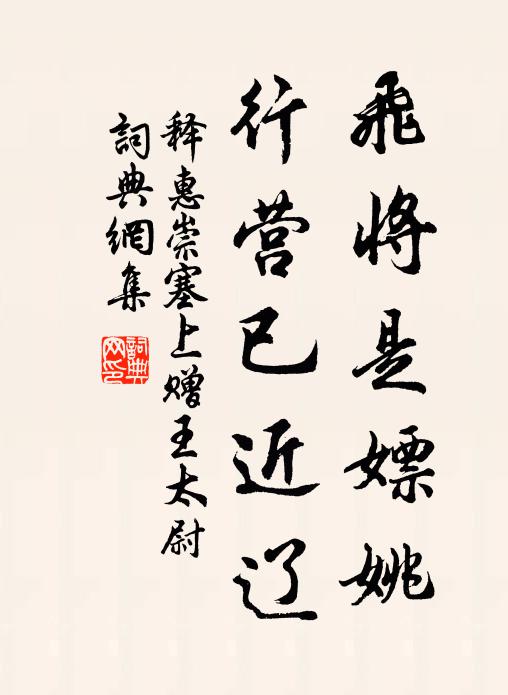 飛將是嫖姚
行营已近辽
释惠崇塞上赠王太尉
詞典網集
詞典网印